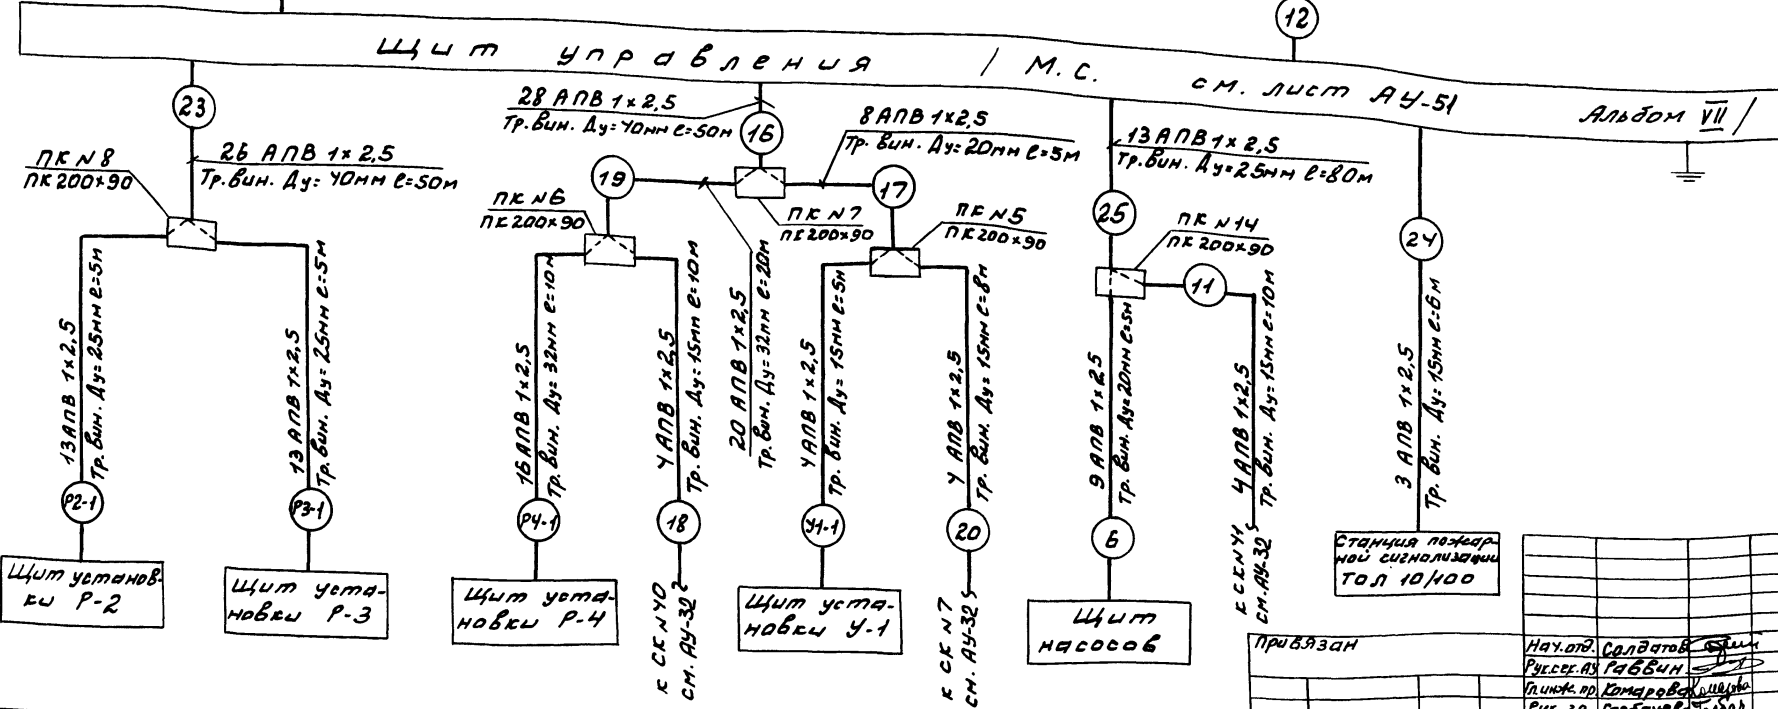 12
Щит управления / М.С. см. лист АУ-51 Альбом VII /
23
26 АПВ 1×2,5
Тр. вин. Ду=40мм ℓ=50м
ПК N8
ПК 200×90
13 АПВ 1×2,5
Тр. вин. Ду=25мм ℓ=5м
13 АПВ 1×2,5
Тр. вин. Ду=25мм ℓ=5м
Р2-1
Р3-1
Щит установ-
ки Р-2
Щит уста-
новки Р-3
28 АПВ 1×2,5
Тр. вин. Ду=40мм ℓ=50м
16
8 АПВ 1×2,5
Тр. вин. Ду=20мм ℓ=5м
19
17
ПК N6
ПК 200×90
ПК N7
ПК 200×90
ПК N5
ПК 200×90
16 АПВ 1×2,5
Тр. вин. Ду=32мм ℓ=10м
4 АПВ 1×2,5
Тр. вин. Ду=15мм ℓ=10м
20 АПВ 1×2,5
Тр. вин. Ду=32мм ℓ=20м
4 АПВ 1×2,5
Тр. вин. Ду=15мм ℓ=5м
4 АПВ 1×2,5
Тр. вин. Ду=15мм ℓ=8м
Р4-1
18
У1-1
20
Щит уста-
новки Р-4
к СК N40
см. АУ-32
Щит уста-
новки У-1
к СК N7
см. АУ-32
13 АПВ 1×2,5
Тр. вин. Ду=25мм ℓ=80м
25
ПК N14
ПК 200×90
11
9 АПВ 1×25
Тр. вин. Ду=20мм ℓ=5м
4 АПВ 1×2,5
Тр. вин. Ду=15мм ℓ=10м
6
Щит
насосов
к СК N41
см. АУ-32
24
3 АПВ 1×2,5
Тр. вин. Ду=15мм ℓ=6м
Станция пожар-
ной сигнализации
ТОЛ 10/100
Привязан
Нач.отд. Солдатов
Рук.сек.АУ Раввин
Гл.инж.пр. Комарова